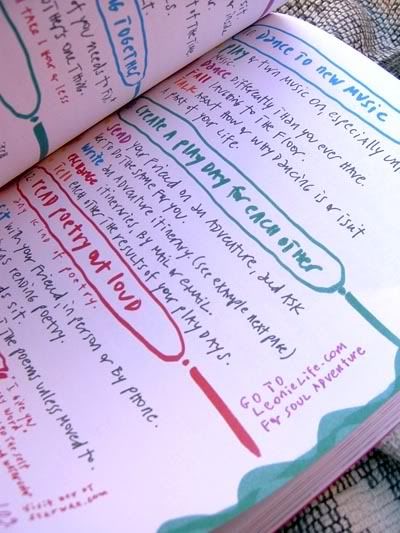 NG TOGETHER
at you need to fix
OTHER'S ONE THING.
TAKE 1 HOUR OR LESS
DANCE TO NEW MUSIC
Play or turn music on especially
DANCE Differently Than you ever have.
Fall laughing to the floor.
Talk about how or why dancing is or isn't
a part of your life.
Create a Play Day for each other
Send your friend on an adventure, and ask
to do the same for you.
Write an adventure itinerary. (see example next page)
exchange itineraries by mail or email.
Tell each other the results of your play days.
read poetry out loud
any kind of poetry
with your friend in person or by phone.
reading poetry.
sit.
The poems unless moved to.
GO TO
LeonieLife.com
For Soul Adventure
visit her at
starwae.com